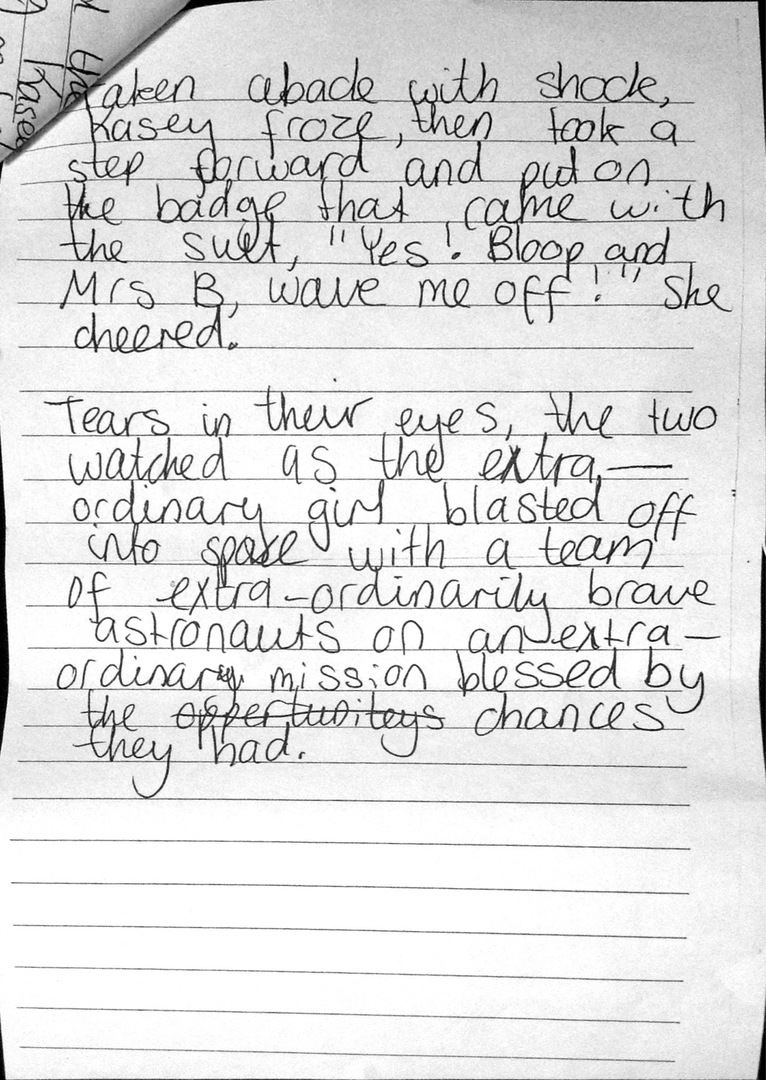 Taken aback with shock,
Kasey froze, then took a
step forward and put on
the badge that came with
the suit, "Yes! Bloop and
Mrs B, wave me off!" She
cheered.
Tears in their eyes, the two
watched as the extra-
ordinary girl blasted off
into space with a team
of extra-ordinarily brave
astronauts on an extra-
ordinary mission blessed by
the opportuniteys chances
they had.